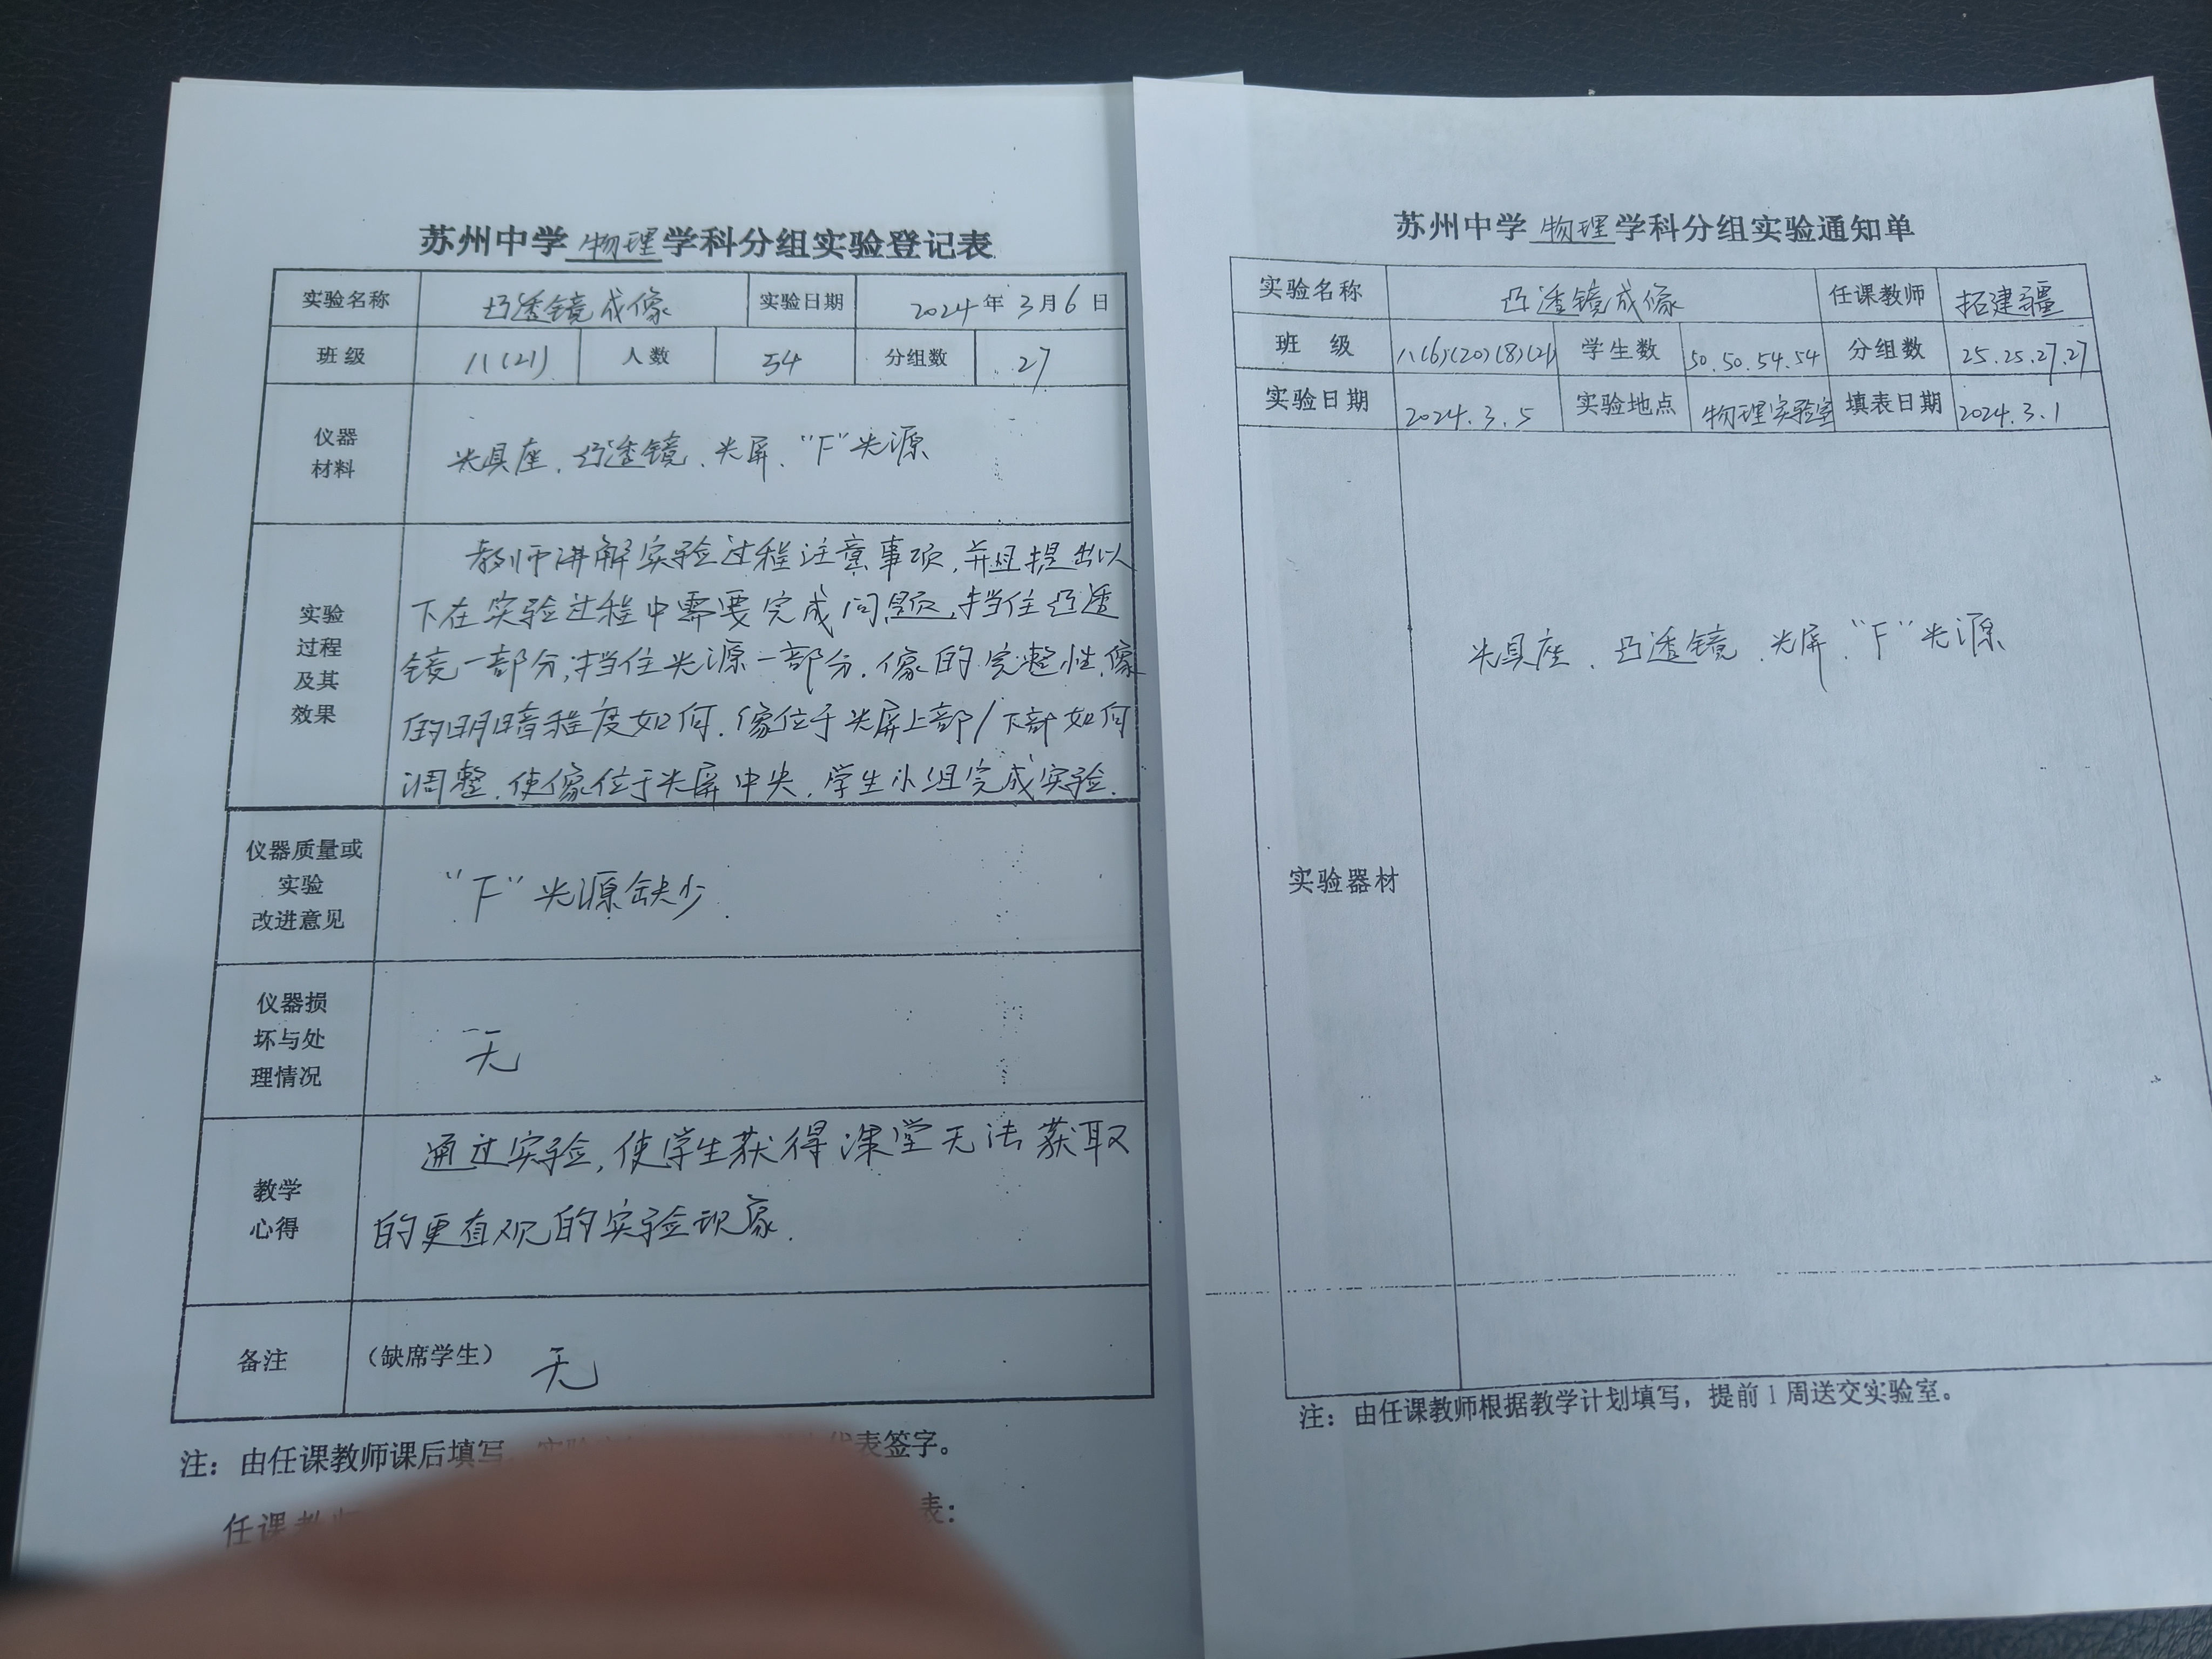 苏州中学 物理 学科分组实验登记表
实验名称 凸透镜成像 实验日期 2024年3月6日
班级 八(21) 人数 54 分组数 27
仪器
材料
光具座、凸透镜、光屏、“F”光源
实验
过程
及其
效果
教师讲解实验过程注意事项,并且提出以
下在实验过程中需要完成问题,挡住凸透
镜一部分;挡住光源一部分.像的完整性.像
的明暗程度如何.像位于光屏上部/下部如何
调整.使像位于光屏中央.学生小组完成实验.
仪器质量或
实验
改进意见
“F”光源缺少.
仪器损
坏与处
理情况
无
教学
心得
通过实验,使学生获得课堂无法获取
的更直观的实验现象.
备注 (缺席学生) 无
注:由任课教师课后填写 代表签字。
任课教师 表:
苏州中学 物理 学科分组实验通知单
实验名称 凸透镜成像 任课教师 拓建疆
班 级 八(6)(20)(8)(21) 学生数 50.50.54.54 分组数 25.25.27.27
实验日期 2024.3.5 实验地点 物理实验室 填表日期 2024.3.1
实验器材
光具座、凸透镜、光屏、“F”光源
注:由任课教师根据教学计划填写,提前1周送交实验室。